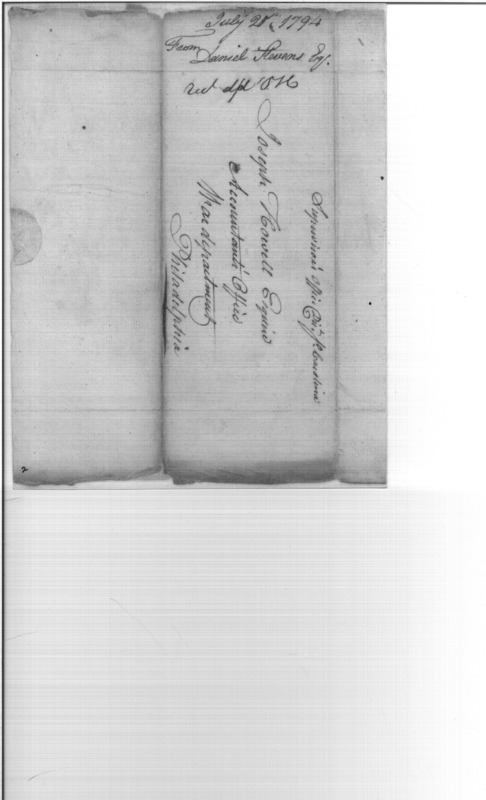 July 21st, 1794
From
Daniel Stevens Esq.
Supervisor's office So Carolina
Joseph Howell Esquire
Accountants Office
War department
Philadelphia